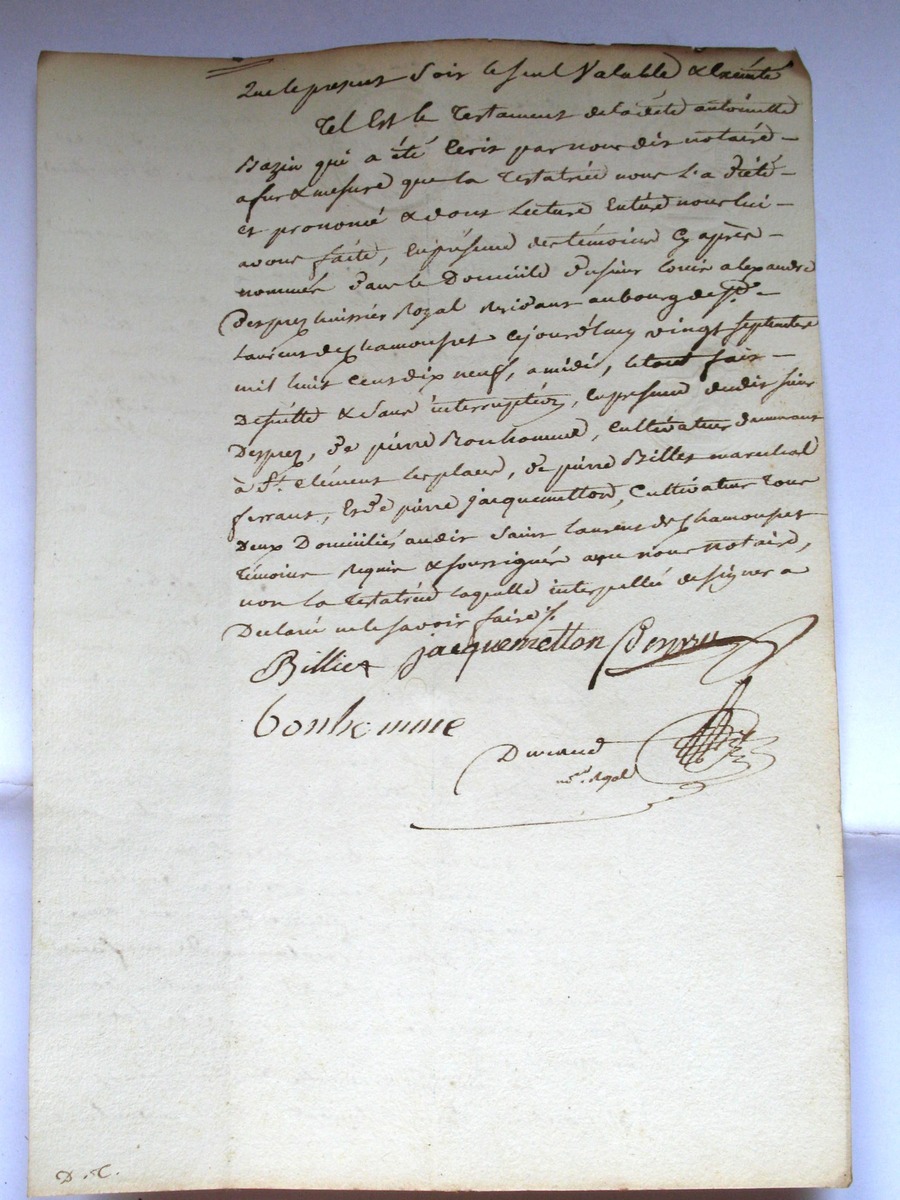 Que le present Soit le seul Valable & Exécuté
Tel Est le Testament de la dite antoinette
Bazin qui a été Ecrit par nous dit notaire
a fur & mesure que la Testatrice nous l'a dicté
et prononcé & dont Lecture Entière nous lui
avons faite, En présence des témoins Cy après
nommés dans le Domicile du sieur louis alexandre
Desprez huissier Royal Residant au bourg de St.
Laurent de Chamousset cejourd'huy vingt septembre
mil huit cent dix neuf, a midi, le tout fait
De suitte & sans interruption, En presence dudit sieur
Desprez, de pierre Bonhomme, Cultivateur demeurant
à St. Clément les places, de pierre Billet marechal
ferrant, Et de pierre jacquemetton, Cultivateur Tous
Deux Domiciliés audit Saint Laurent de Chamousset
Témoins Requis & soussignés avec nous notaire,
non la Testatrice laquelle interpellée de signer a
Declaré ne le savoir faire /.
Billiet jacquemetton
bonhomme
Durand
no.re Royal
D. C.